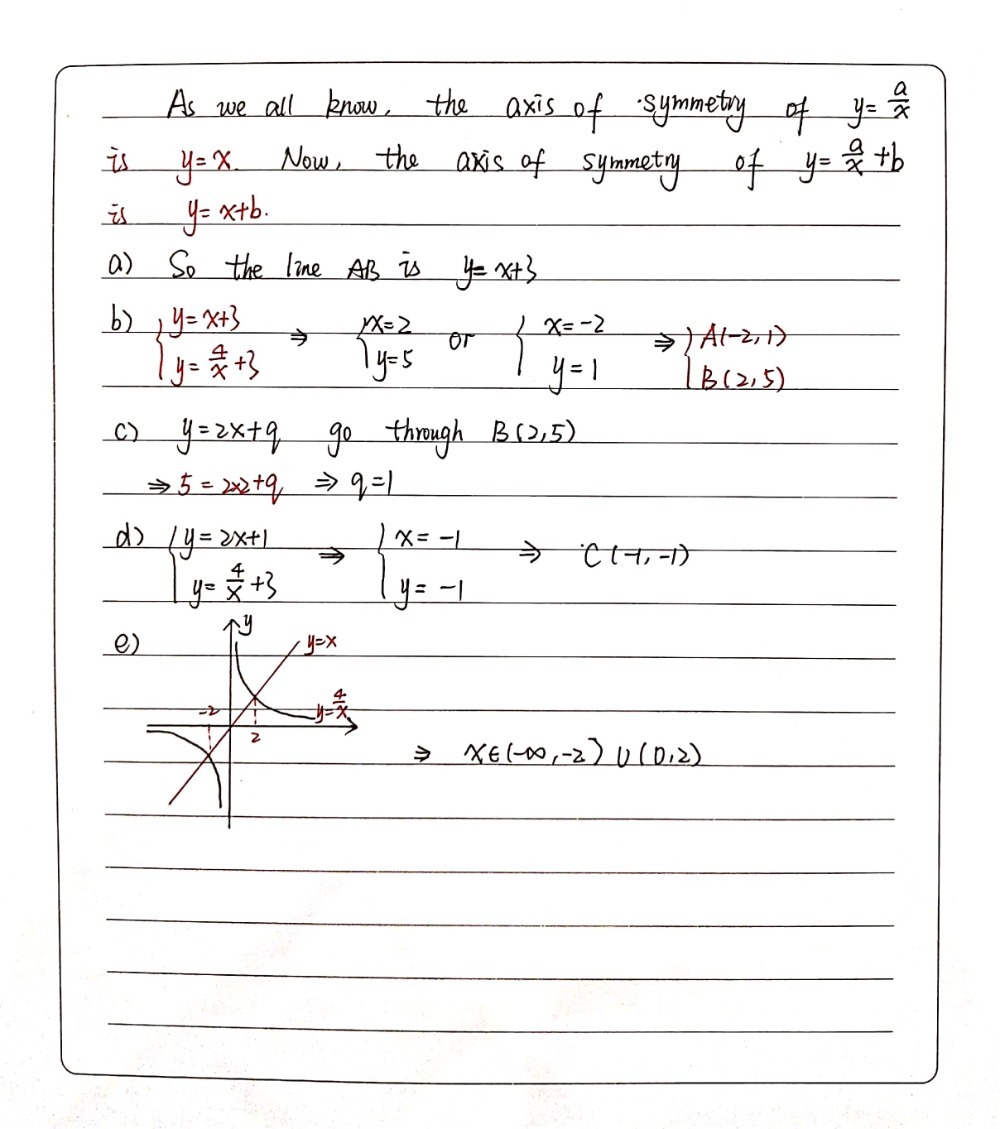 As we all know, the axis of symmetry of y = a/x
is y = x. Now, the axis of symmetry of y = a/x + b
is y = x+b.
a) So the line AB is y = x+3
b) { y = x+3  y = 4/x + 3 ⇒ { x = 2  y = 5 or { x = -2  y = 1 ⇒ { A(-2, 1)  B(2, 5)
c) y = 2x+q go through B(2,5)
⇒ 5 = 2×2+q ⇒ q = 1
d) { y = 2x+1  y = 4/x + 3 ⇒ { x = -1  y = -1 ⇒ C(-1, -1)
e)
y
y=x
y=4/x
-2
2
⇒ x∈(-∞, -2) ∪ (0, 2)